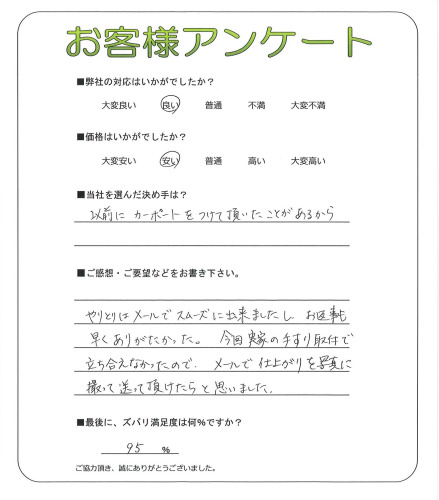 お客様アンケート
■弊社の対応はいかがでしたか?
大変良い 良い 普通 不満 大変不満
■価格はいかがでしたか?
大変安い 安い 普通 高い 大変高い
■当社を選んだ決め手は?
以前に カーポートをつけて頂いたことがあるから
■ご感想・ご要望などをお書き下さい。
やりとりはメールで スムーズに出来ましたし、お返事も
早くありがたかった。 今回 実家の手すり取付で
立ち合えなかったので、 メールで 仕上がりを写真に
撮って送って頂けたらと思いました。
■最後に、ズバリ満足度は何%ですか?
95 %
ご協力頂き、誠にありがとうございました。